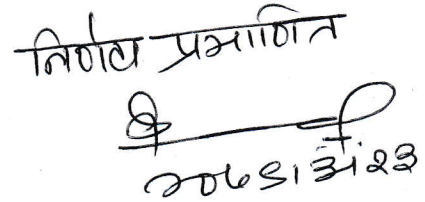 निर्णय प्रमाणित
२०७९।३।२३